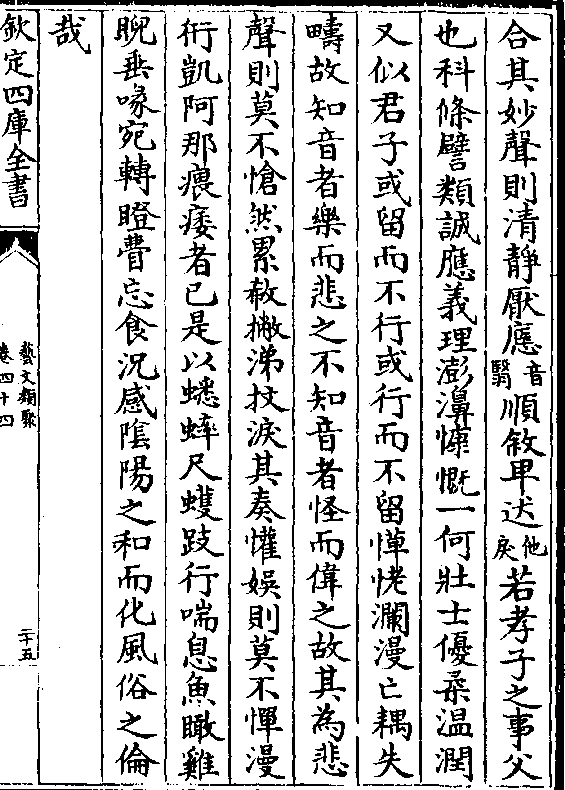 合其妙聲則清靜厭應音翳順敘卑迖他戾若孝子之事父
也科條譬類誠應義理澎濞慷慨一何壯士優柔温潤
又似君子或留而不行或行而不留愺恅瀾漫亡耦失
疇故知音者樂而悲之不知音者怪而偉之故其為悲
聲則莫不愴然累欷撇涕抆淚其奏懽娛則莫不憚漫
衎凱阿那腲痿者已是以蟋蟀尺蠖跂行喘息魚瞰雞
睨垂喙宛轉瞪瞢忘食況感隂陽之和而化風俗之倫
哉
欽定四庫全書
藝文類聚
卷四十四
二十五